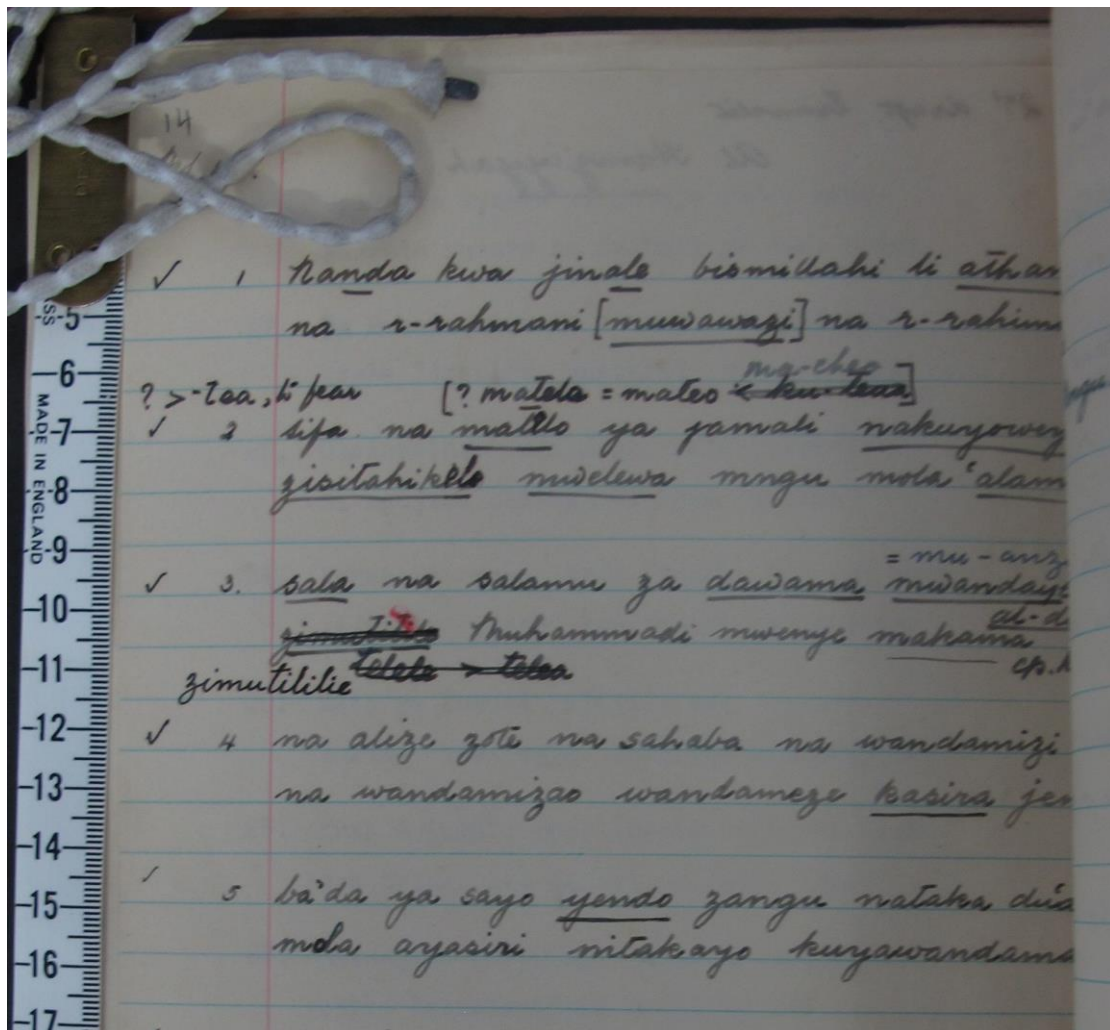 14
✓ 1 Nanda kwa jinale bismillahi li athar
na r-rahmani [muwawazi] na r-rahim
ma-cheo
? > -taa, ti fear [? matela = mateo < ku-teua]
✓ 2 sifa na matelo ya jamali nakuyowez
zisitahikelo muelewa mngu mola 'alam
= mu-anz
✓ 3. sala na salamu za dawama mwandaye
al-d
zimutilile Muhammadi mwenye makama
telele > telea cp.
zimutililie
✓ 4 na alize zote na sahaba na wandamizi
na wandamizao wandameze kasira jem
✓ 5 ba'da ya sayo yendo zangu nataka dua
mola ayasiri nitakayo kuyawandama
-5
-6
-7
-8
-9
-10
-11
-12
-13
-14
-15
-16
-17
MADE IN ENGLAND